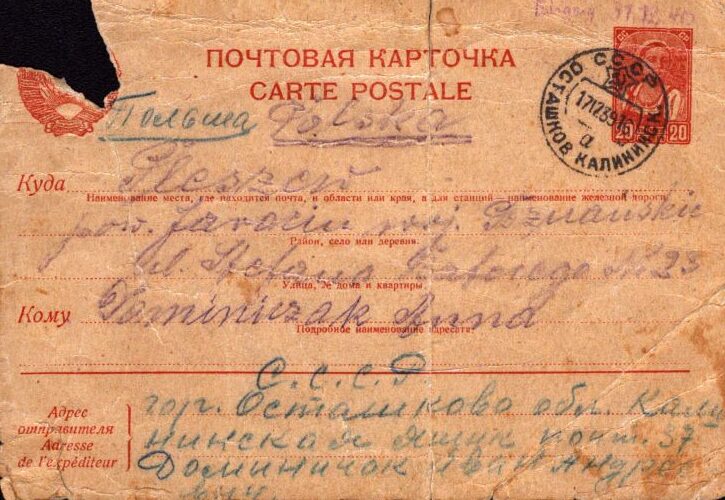 ПОЧТОВАЯ КАРТОЧКА
CARTE POSTALE
СССР
ОСТАШКОВ КАЛИНИНСК.
20 20
Польша Polska
Куда Pleszew
Наименование места, где находится почта, в области или края, а для станций — наименование железной дороги
pow. Jarocin woj. Poznańskie
Район, село или деревня.
ul. Stefana Batorego № 23
Улица, № дома и квартиры.
Кому Dominiczak Anna
Подробное наименование адресата:
С.С.С.Р
Адрес отправителя
Adresse de l'expéditeur
гор. Осташково обл. Кали
нинская ящик почт. 37
Доминичок Иван Андрее
вич